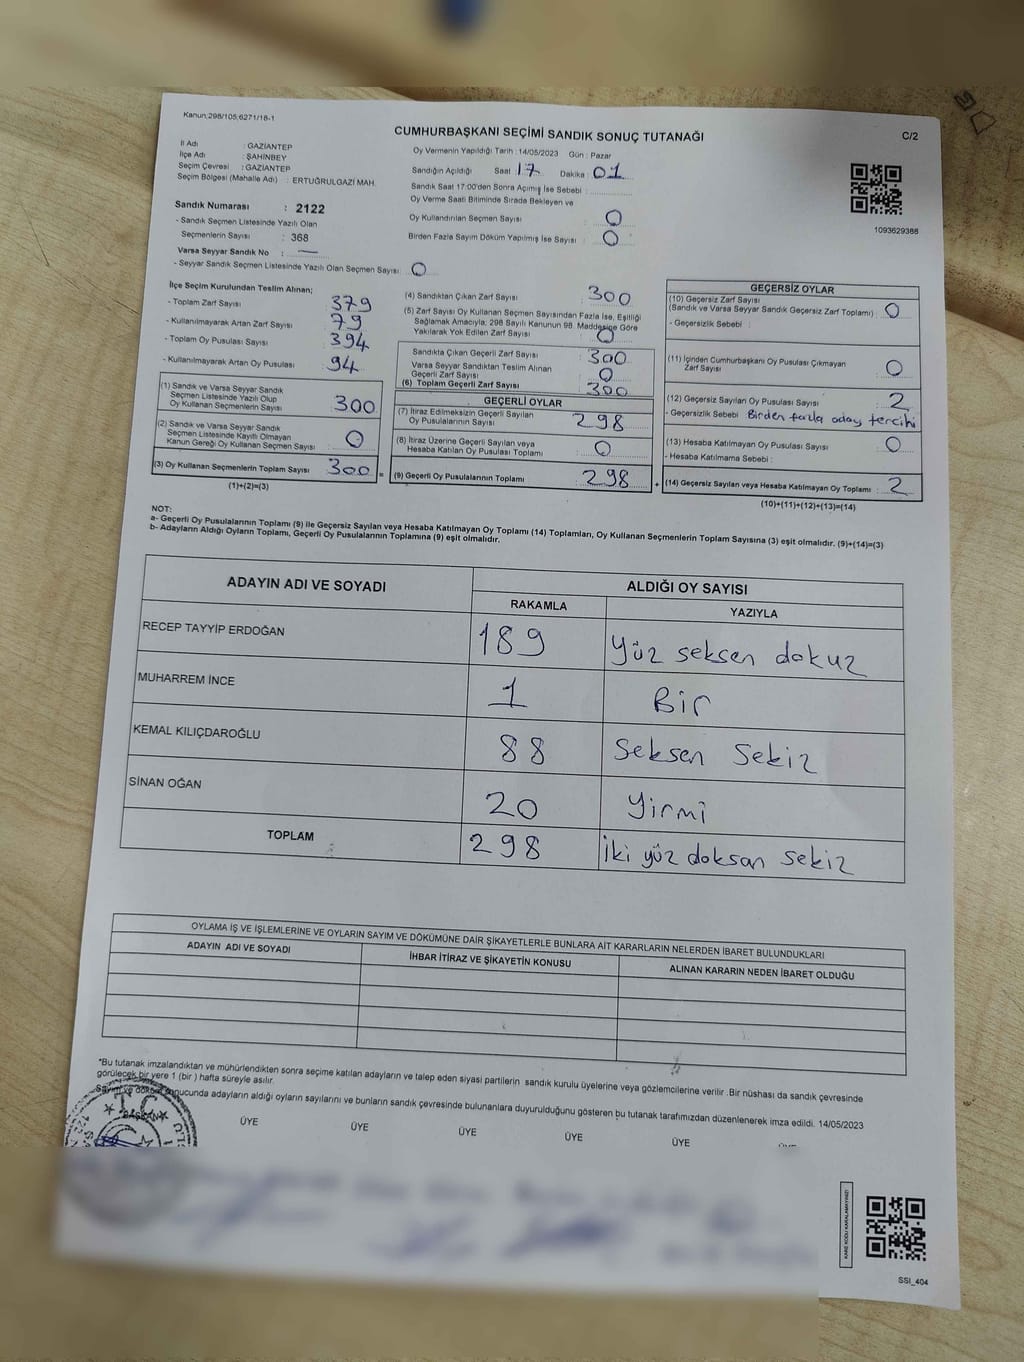 Kanun;298/105;6271/18-1
CUMHURBAŞKANI SEÇİMİ SANDIK SONUÇ TUTANAĞI
C/2
İl Adı : GAZİANTEP
İlçe Adı : ŞAHİNBEY
Seçim Çevresi : GAZİANTEP
Seçim Bölgesi (Mahalle Adı) : ERTUĞRULGAZİ MAH.
Oy Vermenin Yapıldığı Tarih : 14/05/2023 Gün : Pazar
Sandığın Açıldığı Saat : 17 Dakika : 01
Sandık Saat 17:00'den Sonra Açılmış İse Sebebi :
Oy Verme Saati Bitiminde Sırada Bekleyen ve
Oy Kullandırılan Seçmen Sayısı : 0
Birden Fazla Sayım Döküm Yapılmış İse Sayısı : 0
1093629388
Sandık Numarası : 2122
- Sandık Seçmen Listesinde Yazılı Olan
Seçmenlerin Sayısı : 368
Varsa Seyyar Sandık No : —
- Seyyar Sandık Seçmen Listesinde Yazılı Olan Seçmen Sayısı: 0
İlçe Seçim Kurulundan Teslim Alınan;
- Toplam Zarf Sayısı : 379
- Kullanılmayarak Artan Zarf Sayısı : 79
- Toplam Oy Pusulası Sayısı : 394
- Kullanılmayarak Artan Oy Pusulası : 94
(1) Sandık ve Varsa Seyyar Sandık
Seçmen Listesinde Yazılı Olup
Oy Kullanan Seçmenlerin Sayısı : 300
(2) Sandık ve Varsa Seyyar Sandık
Seçmen Listesinde Kayıtlı Olmayan
Kanun Gereği Oy Kullanan Seçmen Sayısı : 0
(3) Oy Kullanan Seçmenlerin Toplam Sayısı : 300 =
(1)+(2)=(3)
(4) Sandıktan Çıkan Zarf Sayısı : 300
(5) Zarf Sayısı Oy Kullanan Seçmen Sayısından Fazla İse, Eşitliği
Sağlamak Amacıyla; 298 Sayılı Kanunun 98. Maddesine Göre
Yakılarak Yok Edilen Zarf Sayısı : 0
Sandıkta Çıkan Geçerli Zarf Sayısı : 300
Varsa Seyyar Sandıktan Teslim Alınan
Geçerli Zarf Sayısı : 0
(6) Toplam Geçerli Zarf Sayısı : 300
GEÇERLİ OYLAR
(7) İtiraz Edilmeksizin Geçerli Sayılan
Oy Pusulalarının Sayısı : 298
(8) İtiraz Üzerine Geçerli Sayılan veya
Hesaba Katılan Oy Pusulası Toplamı : 0
(9) Geçerli Oy Pusulalarının Toplamı : 298 +
GEÇERSİZ OYLAR
(10) Geçersiz Zarf Sayısı
(Sandık ve Varsa Seyyar Sandık Geçersiz Zarf Toplamı) : 0
- Geçersizlik Sebebi :
(11) İçinden Cumhurbaşkanı Oy Pusulası Çıkmayan
Zarf Sayısı : 0
(12) Geçersiz Sayılan Oy Pusulası Sayısı : 2
- Geçersizlik Sebebi : Birden fazla aday tercihi
(13) Hesaba Katılmayan Oy Pusulası Sayısı : 0
- Hesaba Katılmama Sebebi :
(14) Geçersiz Sayılan veya Hesaba Katılmayan Oy Toplamı : 2
(10)+(11)+(12)+(13)=(14)
NOT:
a- Geçerli Oy Pusulalarının Toplamı (9) ile Geçersiz Sayılan veya Hesaba Katılmayan Oy Toplamı (14) Toplamları, Oy Kullanan Seçmenlerin Toplam Sayısına (3) eşit olmalıdır. (9)+(14)=(3)
b- Adayların Aldığı Oyların Toplamı, Geçerli Oy Pusulalarının Toplamına (9) eşit olmalıdır.
ADAYIN ADI VE SOYADI
ALDIĞI OY SAYISI
RAKAMLA YAZIYLA
RECEP TAYYİP ERDOĞAN 189 Yüz seksen dokuz
MUHARREM İNCE 1 Bir
KEMAL KILIÇDAROĞLU 88 Seksen Sekiz
SİNAN OĞAN 20 Yirmi
TOPLAM 298 İki yüz doksan sekiz
OYLAMA İŞ VE İŞLEMLERİNE VE OYLARIN SAYIM VE DÖKÜMÜNE DAİR ŞİKAYETLERLE BUNLARA AİT KARARLARIN NELERDEN İBARET BULUNDUKLARI
ADAYIN ADI VE SOYADI İHBAR İTİRAZ VE ŞİKAYETİN KONUSU ALINAN KARARIN NEDEN İBARET OLDUĞU
"Bu tutanak imzalandıktan ve mühürlendikten sonra seçime katılan adayların ve talep eden siyasi partilerin sandık kurulu üyelerine veya gözlemcilerine verilir. Bir nüshası da sandık çevresinde
görülecek bir yere 1 (bir ) hafta süreyle asılır.
Sayım ve döküm sonucunda adayların aldığı oyların sayılarını ve bunların sandık çevresinde bulunanlara duyurulduğunu gösteren bu tutanak tarafımızdan düzenlenerek imza edildi. 14/05/2023
T.C.
BAŞKAN
ÜYE ÜYE ÜYE ÜYE ÜYE
KARE KODU KARALAMAYINIZ!
SSI_404